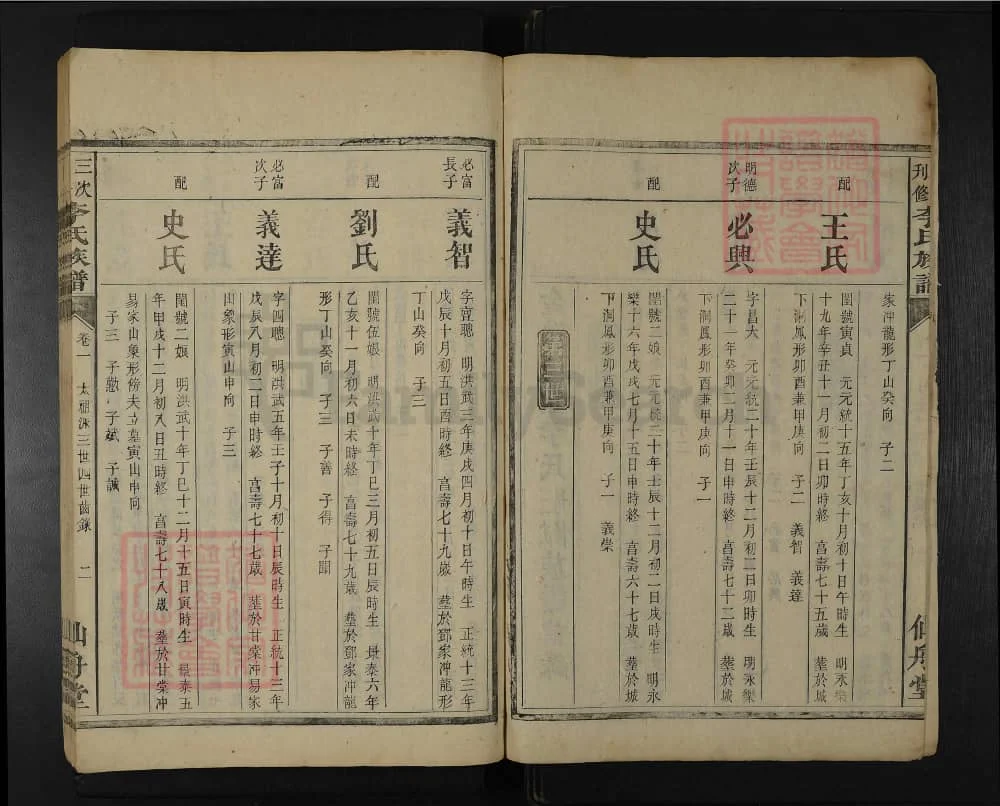 刋修李氏族譜
仙舟堂
家冲龍形丁山癸向 子二
配
王氏
閨號寅貞 元元統十五年丁亥十月初十日午時生 明永樂
十九年辛丑十一月初二日卯時終 亯壽七十五歲 塟於城
下洞鳳形卯酉兼甲庚向 子二 義智 義達
明德
次子
必興
字昌大 元元統二十年壬辰十二月初二日卯時生
二十一年癸卯二月十一日申時終 亯壽七十二歲 塟於城
下洞鳳形卯酉兼甲庚向 子一
史氏
閨號二娘 元元統二十年壬辰十二月初二日戌時生 明永
樂十六年戊戌七月十五日申時終 亯壽六十七歲 塟於城
下洞鳳形卯酉兼甲庚向 子一 義榮
第三世
必富
長子
義智
字壹聰 明洪武三年庚戌四月初十日午時生 正統十三年
戊辰十月初五日酉時終 亯壽七十九歲 塟於鄧家沖龍形
丁山癸向 子三
配
劉氏
閨號伍娘 明洪武十年丁巳三月初五日辰時生 景泰六年
乙亥十一月初六日未時終 亯壽七十九歲 塟於鄧家冲龍
形丁山癸向 子三 子善 子得 子聞
必富
次子
義達
字四聰 明洪武五年壬子十月初十日辰時生 正統十三年
戊辰八月初二日申時終 亯壽七十七歲 塟於甘棠冲易家
山象形寅山申向 子三
配
史氏
閨號二娘 明洪武十年丁巳十二月十五日寅時生 景泰五
年甲戌十二月初八日丑時終 亯壽七十八歲 塟於甘棠冲
易家山象形傍夫立墓寅山申向
子三 子懃 子斌 子誠
三次李氏族譜
卷一
太祖派三世四世齒錄
二
仙舟堂